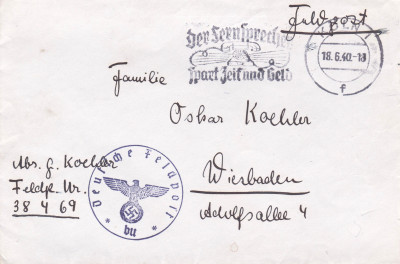 Feldpost
Der Fernsprecher
spart Zeit und Geld
18.6.40.-18
f
Familie
Oskar Koehler
Wiesbaden
Adolfsallee 4
Abs. G. Koehler
Feldp. Nr.
38 4 69
Deutsche Feldpost
bu